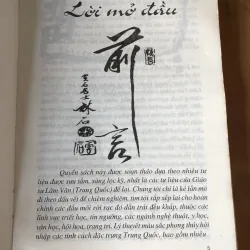 Lời mở đầu
前言
林石
Quyển sách này được soạn thảo dựa theo nhiều tư
liệu sưu tầm, sàng lọc kỹ, nhất là các tư liệu của Giáo
sư Lâm Vân (Trung Quốc) để lại. Chúng tôi chỉ là kẻ lần mò
đi theo dấu vết để chiêm nghiệm, tìm tòi sắp xếp lại cho hoàn
chỉnh các dấu mối rời rạc đó đây trải đều khắp, thuộc các
lĩnh vực triết học, tín ngưỡng, các ngành nghệ thuật, y học,
văn học, hội họa, trang trí. Lý thuyết màu sắc phong thủy hội
nhập các tính cách đặc trưng Trung Quốc, bao gồm nhiều